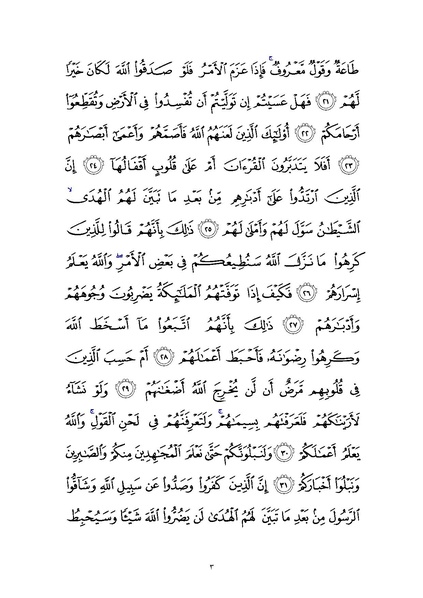 طَاعَةٌ وَقَوْلٌ مَّعْرُوفٌ ۚ فَإِذَا عَزَمَ ٱلْأَمْرُ فَلَوْ صَدَقُوا۟ ٱللَّهَ لَكَانَ خَيْرًا
لَّهُمْ ٢١ فَهَلْ عَسَيْتُمْ إِن تَوَلَّيْتُمْ أَن تُفْسِدُوا۟ فِى ٱلْأَرْضِ وَتُقَطِّعُوٓا۟
أَرْحَامَكُمْ ٢٢ أُو۟لَٰٓئِكَ ٱلَّذِينَ لَعَنَهُمُ ٱللَّهُ فَأَصَمَّهُمْ وَأَعْمَىٰٓ أَبْصَٰرَهُمْ
٢٣ أَفَلَا يَتَدَبَّرُونَ ٱلْقُرْءَانَ أَمْ عَلَىٰ قُلُوبٍ أَقْفَالُهَآ ٢٤ إِنَّ
ٱلَّذِينَ ٱرْتَدُّوا۟ عَلَىٰٓ أَدْبَٰرِهِم مِّنۢ بَعْدِ مَا تَبَيَّنَ لَهُمُ ٱلْهُدَى ۙ
ٱلشَّيْطَٰنُ سَوَّلَ لَهُمْ وَأَمْلَىٰ لَهُمْ ٢٥ ذَٰلِكَ بِأَنَّهُمْ قَالُوا۟ لِلَّذِينَ
كَرِهُوا۟ مَا نَزَّلَ ٱللَّهُ سَنُطِيعُكُمْ فِى بَعْضِ ٱلْأَمْرِ ۖ وَٱللَّهُ يَعْلَمُ
إِسْرَارَهُمْ ٢٦ فَكَيْفَ إِذَا تَوَفَّتْهُمُ ٱلْمَلَٰٓئِكَةُ يَضْرِبُونَ وُجُوهَهُمْ
وَأَدْبَٰرَهُمْ ٢٧ ذَٰلِكَ بِأَنَّهُمُ ٱتَّبَعُوا۟ مَآ أَسْخَطَ ٱللَّهَ
وَكَرِهُوا۟ رِضْوَٰنَهُۥ فَأَحْبَطَ أَعْمَٰلَهُمْ ٢٨ أَمْ حَسِبَ ٱلَّذِينَ
فِى قُلُوبِهِم مَّرَضٌ أَن لَّن يُخْرِجَ ٱللَّهُ أَضْغَٰنَهُمْ ٢٩ وَلَوْ نَشَآءُ
لَأَرَيْنَٰكَهُمْ فَلَعَرَفْتَهُم بِسِيمَٰهُمْ ۚ وَلَتَعْرِفَنَّهُمْ فِى لَحْنِ ٱلْقَوْلِ ۚ وَٱللَّهُ
يَعْلَمُ أَعْمَٰلَكُمْ ٣٠ وَلَنَبْلُوَنَّكُمْ حَتَّىٰ نَعْلَمَ ٱلْمُجَٰهِدِينَ مِنكُمْ وَٱلصَّٰبِرِينَ
وَنَبْلُوَا۟ أَخْبَارَكُمْ ٣١ إِنَّ ٱلَّذِينَ كَفَرُوا۟ وَصَدُّوا۟ عَن سَبِيلِ ٱللَّهِ وَشَآقُّوا۟
ٱلرَّسُولَ مِنۢ بَعْدِ مَا تَبَيَّنَ لَهُمُ ٱلْهُدَىٰ لَن يَضُرُّوا۟ ٱللَّهَ شَيْـًٔا وَسَيُحْبِطُ
٣